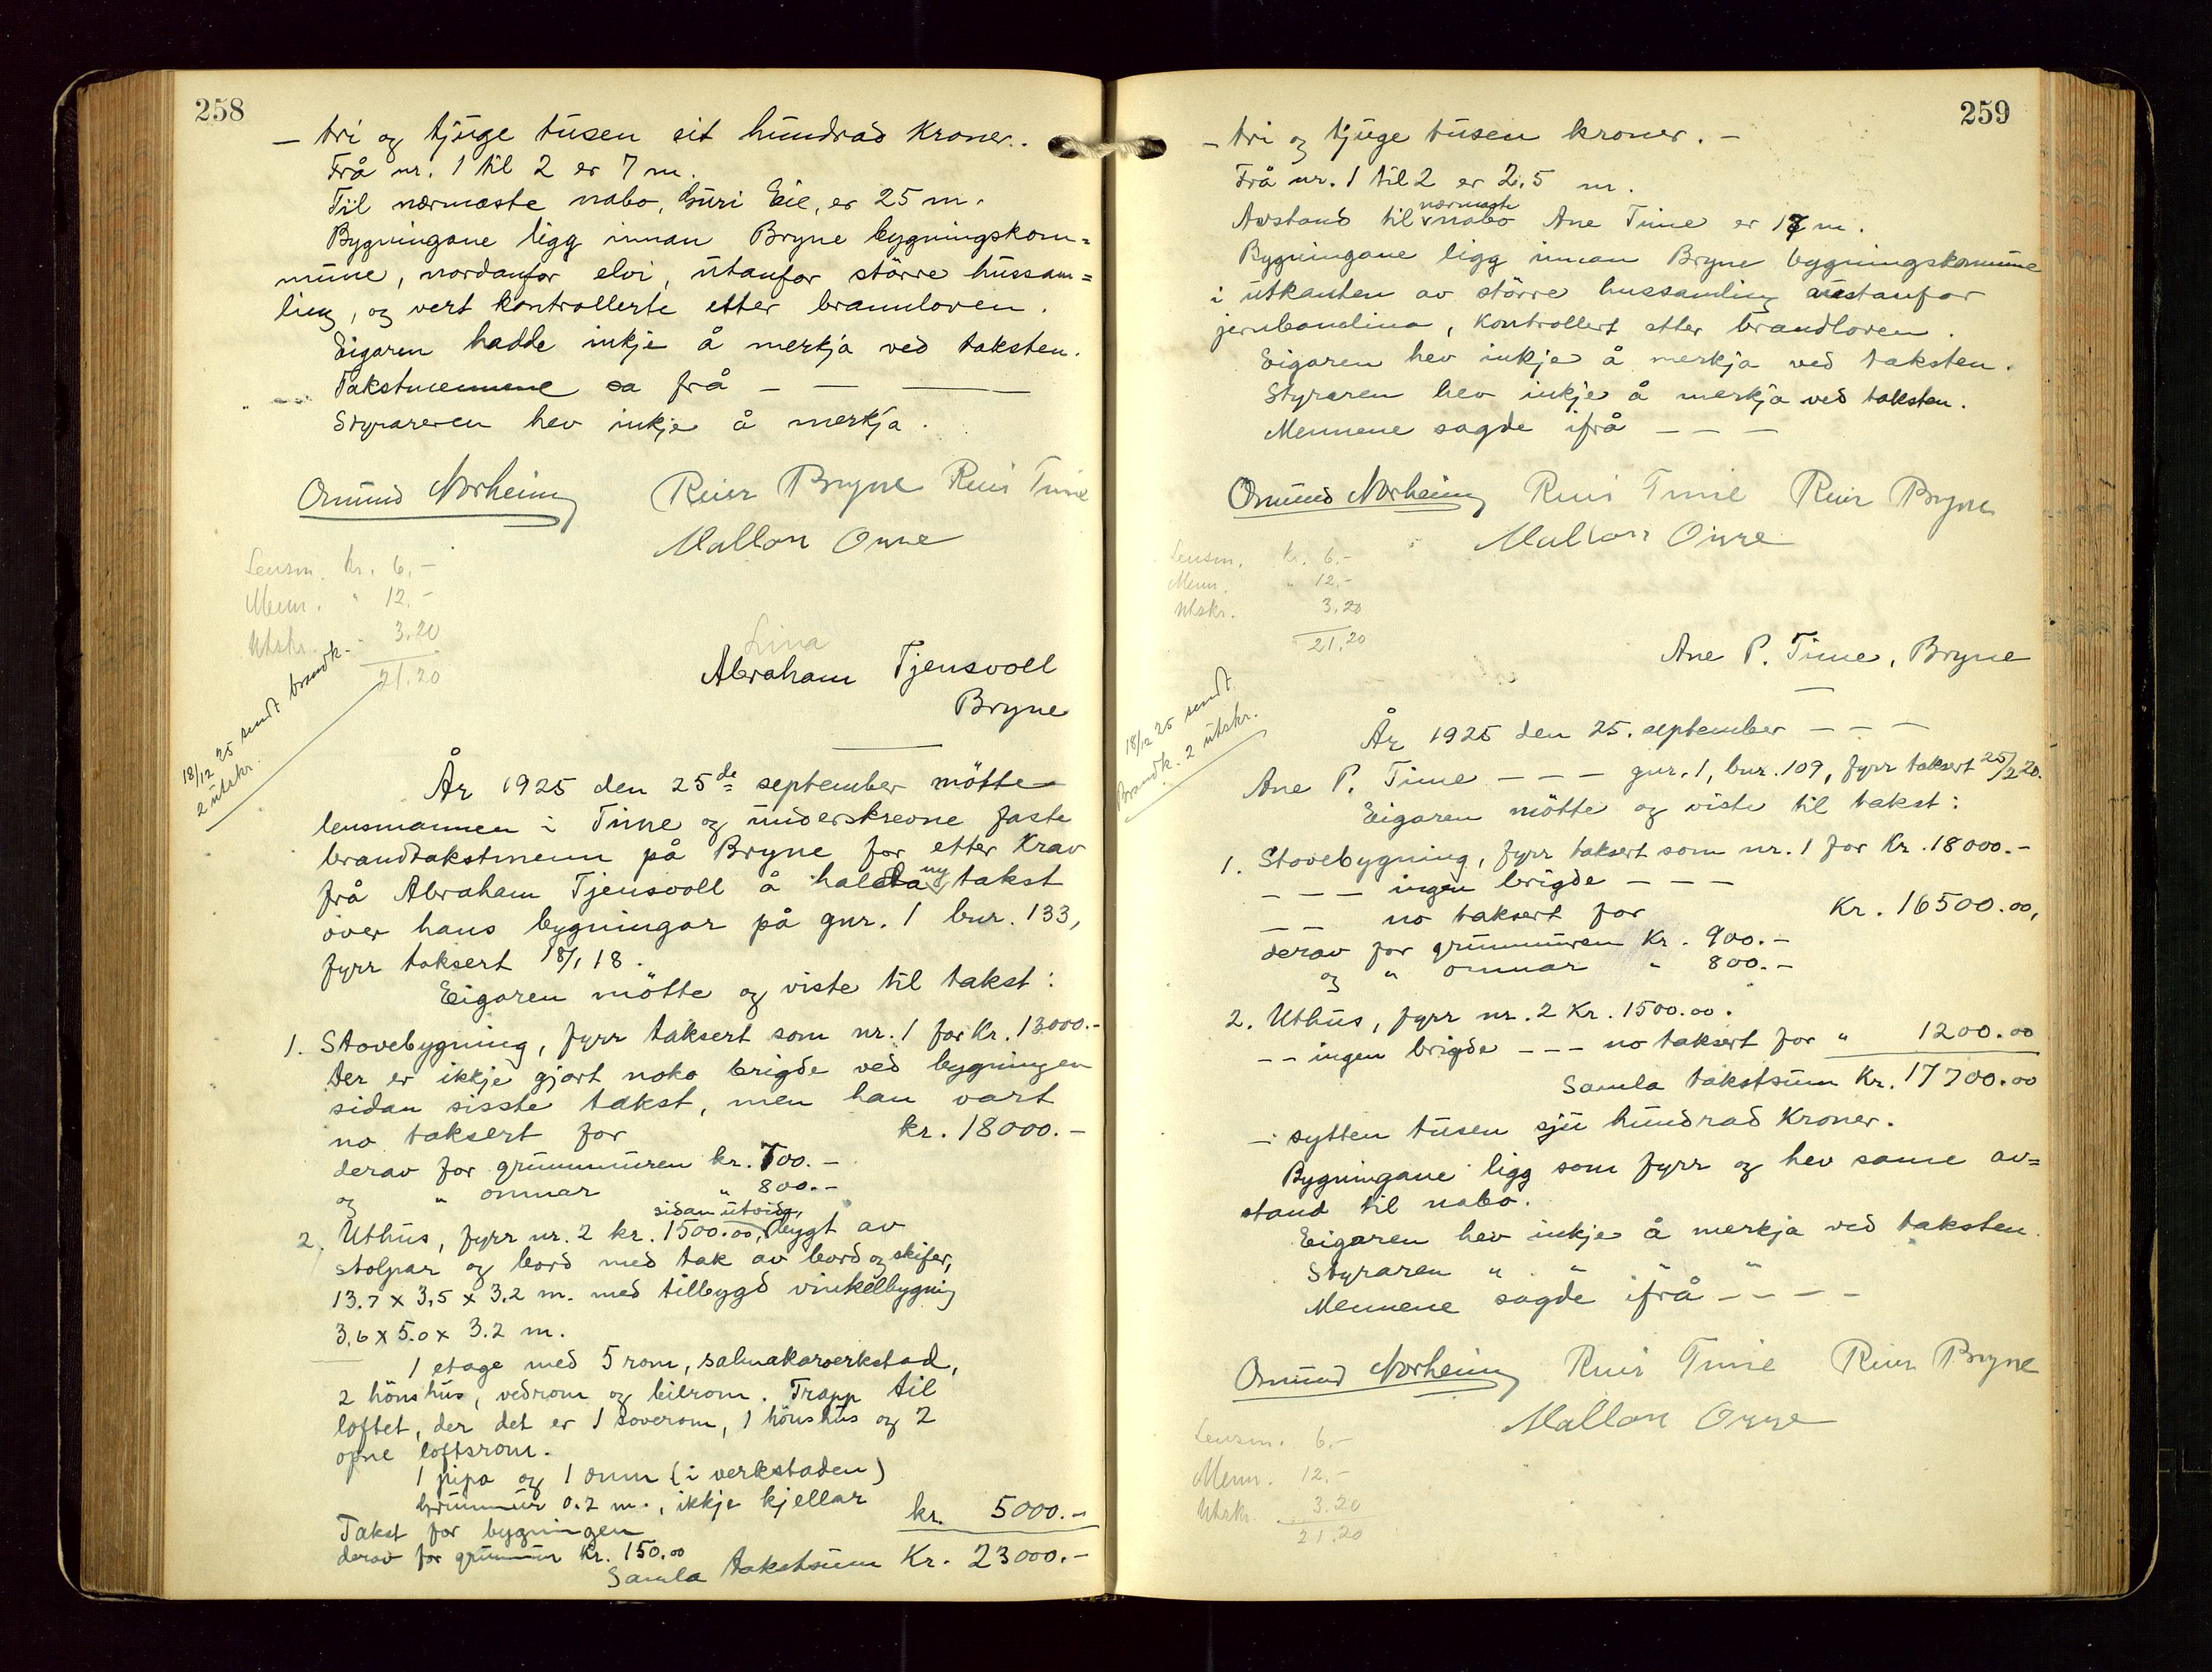 258
— tri og tjuge tusen eit hundrad kroner..
Frå nr. 1 til 2 er 7 m.
Til nærmaste nabo, Guri Eie, er 25 m.
Bygningane ligg innan Bryne bygningskom=
mune, nordanfor elvi, utanfor större hussam=
ling, og vert kontrollerte etter brannloven.
Eigaren hadde inkje å merkja ved taksten.
Takstmennene sa frå — — —
Styrareren hev inkje å merkja.
Osmund Norheim Reier Bryne Reier Time
Mallon Orre
Lensm. kr. 6,-
Menn. " 12.-
Utskr. - 3.20
21.20
18/12 25 sendt brandk.
2 utskr.
Lina
Abraham Tjensvoll
Bryne
År 1925 den 25de september mötte
lensmannen i Time og underskrevne faste
brandtakstmenn på Bryne for etter krav
frå Abraham Tjensvoll å halda ny takst
over hans bygningar på gnr. 1 bnr. 133,
fyrr taksert 18/1 18.
Eigaren mötte og viste til takst:
1. Stovebygning, fyrr taksert som nr. 1 for Kr. 13000.-
Der er ikkje gjort noko brigde ved bygningen
sidan sisste takst, men han vart
no taksert for kr. 18000.-
derav for grunnmuren kr. 700.-
og " omnar " 800.-
sidan utvida,
2. Uthus, fyrr nr. 2 kr. 1500.00, bygt av
stolpar og bord med tak av bord og skifer,
13.7 x 3,5 x 3.2 m. med tilbygd vinkelbygning
3,6 x 5.0 x 3.2 m.
1 etage med 5 rom, salmakarverkstad,
2 hönshus, vedrom og bilrom. Trapp til
loftet, der det er 1 soverom, 1 hönshus og 2
opne loftsrom.
1 pipa og 1 omn (i verkstaden)
Grunnmur 0.2 m., ikkje kjellar
Takst for bygningen kr. 5000.-
derav for grunnmur Kr. 150.00
Samla takstsum Kr. 23000.-
259
— tri og tjuge tusen kroner. —
Frå nr. 1 til 2 er 2.5 m.
nærmaste
Avstand til nabo Ane Time er 17 m.
Bygningane ligg innan Bryne bygningskommune
i utkanten av större hussamling austanfor
jernbanelina, kontrollert etter brandloven.
Eigaren hev inkje å merkja ved taksten.
Styraren hev inkje å merkja ved taksten.
Mennene sagde ifrå — — —
Osmund Norheim Reier Time Reier Bryne
Mallon Orre
Lensm. kr. 6.-
Menn. " 12.-
Utskr. 3.20
21.20
18/12 25 sendt
Brandk. 2 utskr.
Ane P. Time, Bryne
År 1925 den 25. september — — —
Ane P. Time — — — gnr. 1, bnr. 109, fyrr taksert 25/2 20.
Eigaren mötte og viste til takst:
1. Stovebygning, fyrr taksert som nr. 1 for Kr. 18000.-
— — — ingen brigde — — —
— — no taksert for Kr. 16500.00,
derav for grunnmuren Kr. 900.-
og " omnar " 800.-
2. Uthus, fyrr nr. 2 Kr. 1500.00.
— — ingen brigde — — — no taksert for " 1200.00
Samla takstsum Kr. 17700.00
— sytten tusen sju hundrad kroner.
Bygningane ligg som fyrr og hev same av=
stand til nabo.
Eigaren hev inkje å merkja ved taksten.
Styraren " " " "
Mennene sagde ifrå — — — —
Osmund Norheim Reier Time Reier Bryne
Mallon Orre
Lensm. 6.-
Menn. 12.-
Utskr. 3.20
21.20